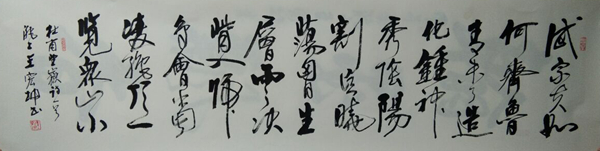 岱宗夫如
何齊魯
青未了造
化鍾神
秀陰陽
割昏曉
蕩胷生
層雲決
眥入歸
鳥會當
凌絶頂一
覽衆山小
杜甫望嶽詩一首
上王宏坤书